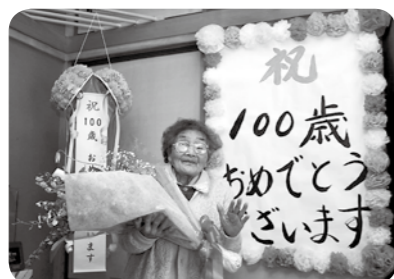 祝
100歳
おめでとう
ざいます
祝100歳 お
います